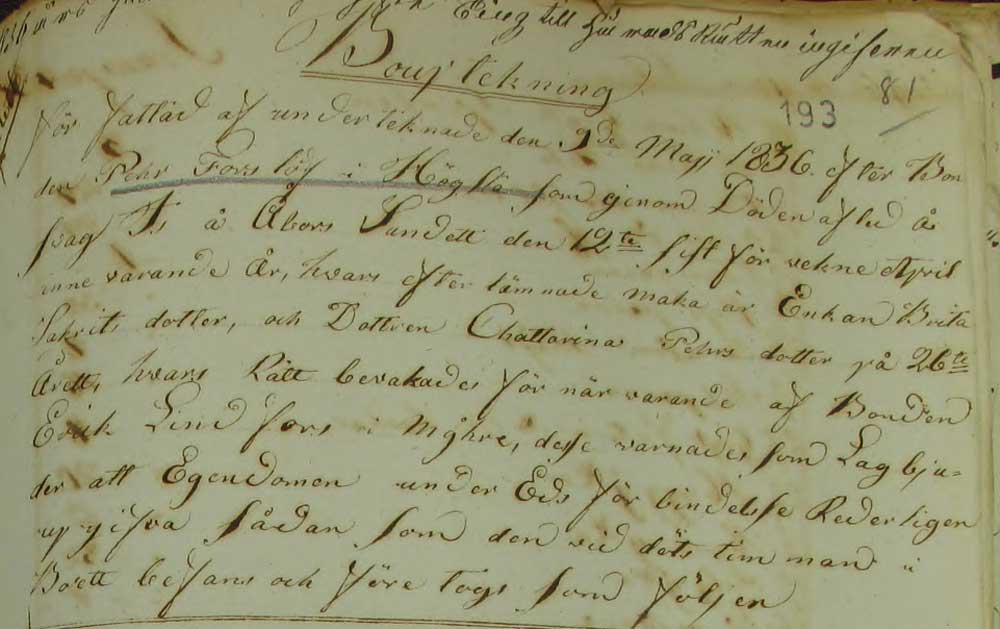 Ting till
Bouptekning
81
193
för fattad af under teknade den 3de Majj 1836. efter Bon
den Pehr Fors löf i Högsta som genom Döden afled å
svag Is å Åbors Sundett den 12te sist för vekne April
inne varande År, hvars efter lämnade maka är Enkan Brita
Sakrits dotter, och Dottren Chattarina Pehrs dotter på 26te
Årett, hvars Rätt bevakades för när varande af Bonden
Erik Lind fors i Myhre, desse varnades som Lag bju-
der att Egendomen under Eds för bindelse Rederligen
up gifva sådan som den vid döds tim man i
Boett befans och före togs som följer